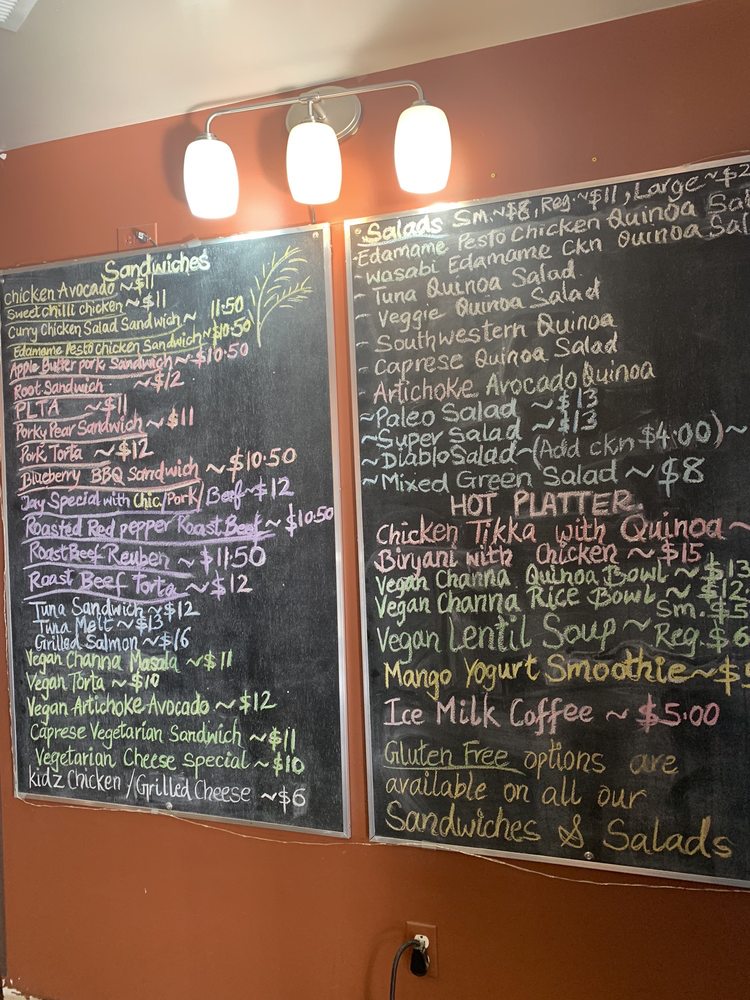 Sandwiches
chicken Avocado ~ $11
Sweet chilli chicken ~ $11
Curry Chicken Salad Sandwich ~ 11.50
Edamame Pesto Chicken Sandwich ~ $10.50
Apple Butter pork Sandwich ~ $10.50
Root Sandwich ~ $12
PLTA ~ $11
Porky Pear Sandwich ~ $11
Pork Torta ~ $12
Blueberry BBQ Sandwich ~ $10.50
Day Special with Chic/Pork/Beef ~ $12
Roasted Red pepper Roast Beef ~ $10.50
Roast Beef Reuben ~ $11.50
Roast Beef Torta ~ $12
Tuna Sandwich ~ $12
Tuna Melt ~ $13
Grilled Salmon ~ $16
Vegan Channa Masala ~ $11
Vegan Torta ~ $10
Vegan Artichoke Avocado ~ $12
Caprese Vegetarian Sandwich ~ $11
Vegetarian Cheese Special ~ $10
kidz Chicken / Grilled Cheese ~ $6
Salads Sm. ~ $8, Reg. ~ $11, Large ~ $2
- Edamame Pesto Chicken Quinoa Sal
- Wasabi Edamame Ckn Quinoa Sal
- Tuna Quinoa Salad
- Veggie Quinoa Salad
- Southwestern Quinoa
- Caprese Quinoa Salad
- Artichoke Avocado Quinoa
~ Paleo Salad ~ $13
~ Super Salad ~ $13
~ Diablo Salad ~ (Add ckn $4.00) ~
~ Mixed Green Salad ~ $8
HOT PLATTER
Chicken Tikka with Quinoa ~
Biryani with Chicken ~ $15
Vegan Channa Quinoa Bowl ~ $13
Vegan Channa Rice Bowl ~ $12
Vegan Lentil Soup ~ Sm. $5
Reg. $6
Mango Yogurt Smoothie ~ $
Ice Milk Coffee ~ $5.00
Gluten Free options are
available on all our
Sandwiches & Salads